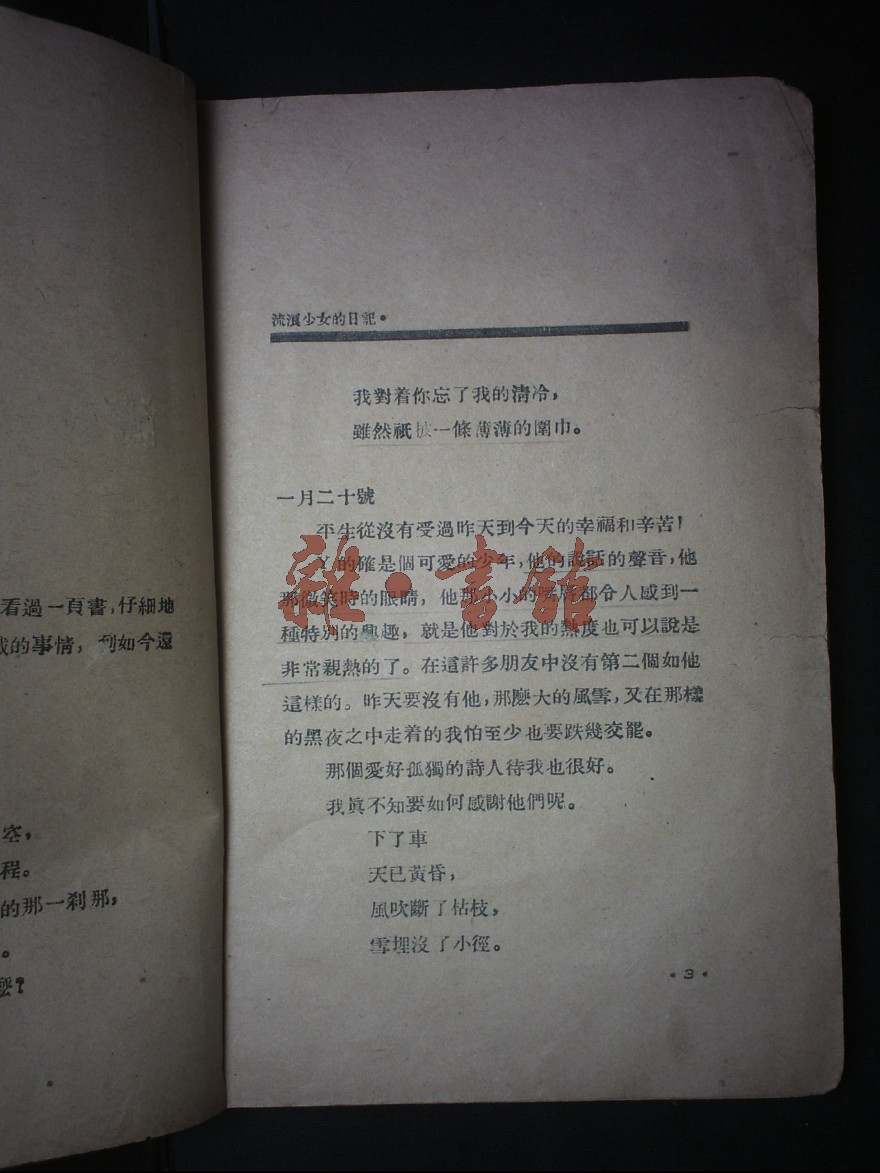 看過一頁書，仔細地
的事情，到如今還
空，
程。
的那一剎那，
。
麼？
流浪少女的日記。
我對着你忘了我的清冷，
雖然祇披一條薄薄的圍巾。
一月二十號
平生從沒有受過昨天到今天的幸福和辛苦！
的確是個可愛的少年，他的說話的聲音，他
那微笑時的眼睛，他那小小的嘴唇都分人感到一
種特別的興趣，就是他對於我的熱度也可以說是
非常親熱的了。在這許多朋友中沒有第二個如他
這樣的。昨天要沒有他，那麼大的風雪，又在那樣
的黑夜之中走着的我怕至少也要跌幾交罷。
那個愛好孤獨的詩人待我也很好。
我眞不知要如何感謝他們呢。
下了車
天已黃昏，
風吹斷了枯枝，
雪埋沒了小徑。
•3•
雜·書館